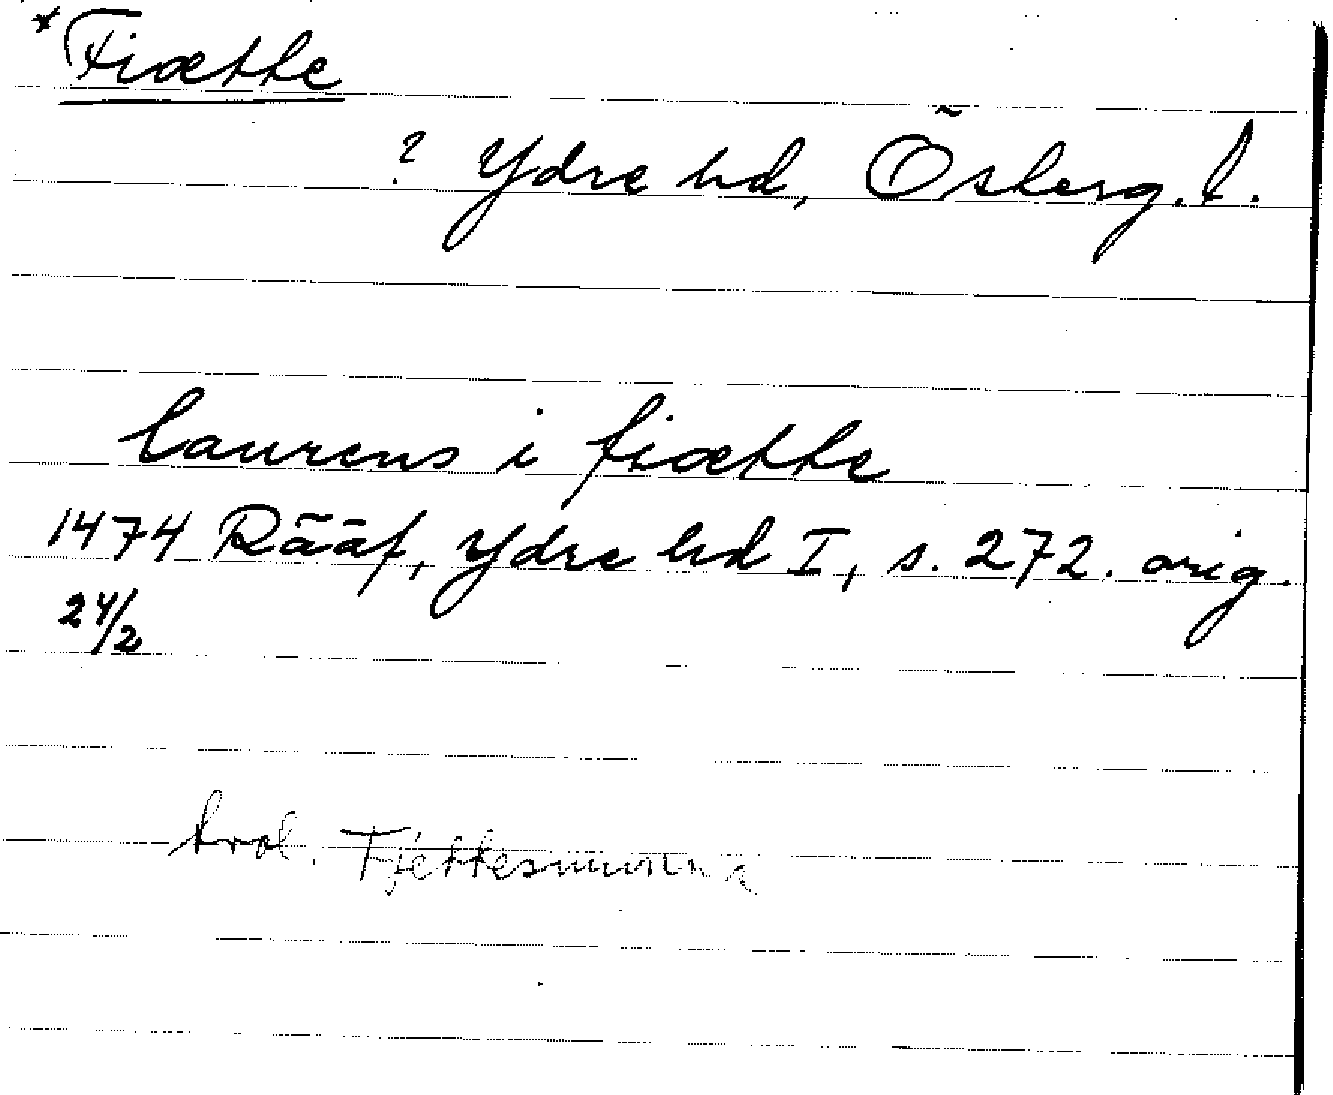 *Fiætte
? Ydre hd, Österg. l.
laurens i fiætte
1474 Rääf, Ydre hd I, s. 272. orig.
24/2
trol. Fjettesmunna